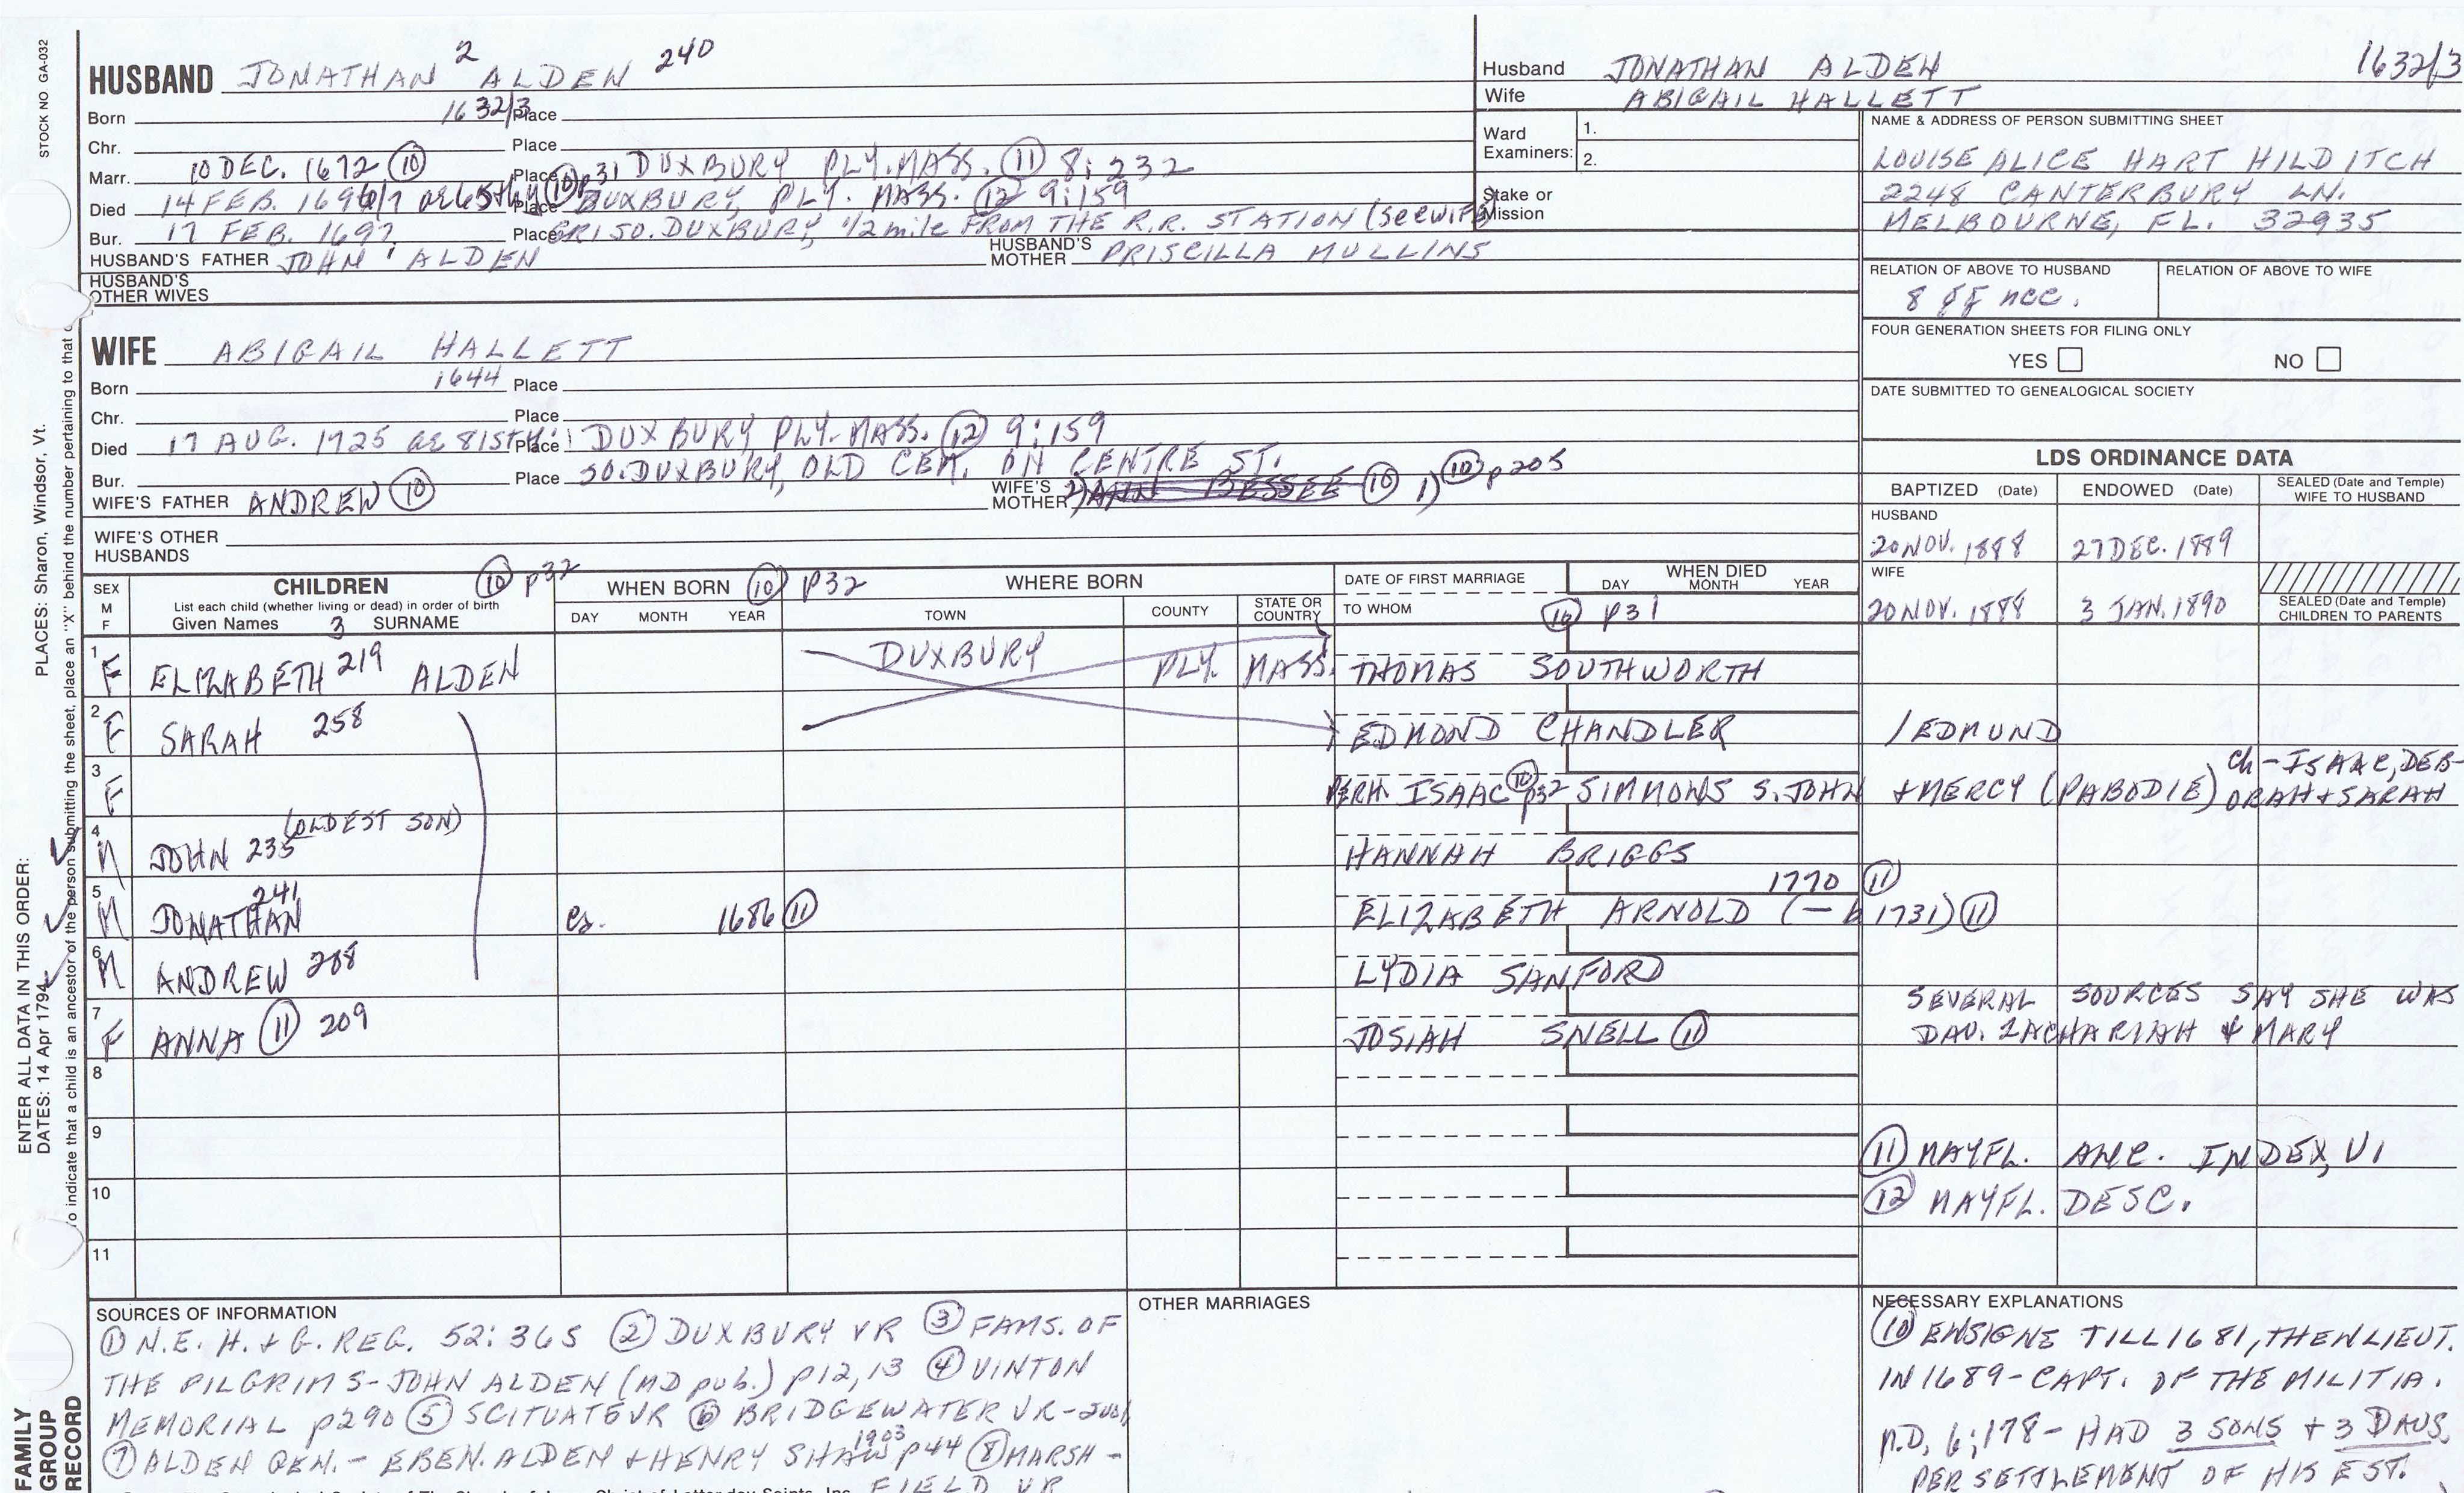 STOCK NO GA-032
HUSBAND JONATHAN 2 ALDEN 240
Born 1632/3 Place
Chr. Place
Marr. 10 DEC. 1672 (10) Place p31 DUXBURY PLY. MASS. (11) 8:232
Died 14 FEB. 1696/7 ae 65th y (10) Place DUXBURY, PLY. MASS. (12) 9:159
Bur. 17 FEB. 1697 Place SO. DUXBURY, 1/2 mile FROM THE R.R. STATION (see WIFE)
HUSBAND'S FATHER JOHN 1 ALDEN HUSBAND'S MOTHER PRISCILLA MULLINS
HUSBAND'S OTHER WIVES
WIFE ABIGAIL HALLETT
Born 1644 Place
Chr. Place
Died 17 AUG. 1725 ae 81st y. Place DUXBURY PLY. MASS. (12) 9:159
Bur. Place SO. DUXBURY, OLD CEM. ON CENTRE ST.
WIFE'S FATHER ANDREW (10) WIFE'S MOTHER 2) ANN BESSEE (10) 1) (10) p205
WIFE'S OTHER HUSBANDS
Husband JONATHAN ALDEN 1632/3
Wife ABIGAIL HALLETT
Ward Examiners: 1.
2.
Stake or Mission
NAME & ADDRESS OF PERSON SUBMITTING SHEET
LOUISE ALICE HART HILDITCH
2248 CANTERBURY LN.
MELBOURNE, FL. 32935
RELATION OF ABOVE TO HUSBAND RELATION OF ABOVE TO WIFE
8 gg nec.
FOUR GENERATION SHEETS FOR FILING ONLY
YES NO
DATE SUBMITTED TO GENEALOGICAL SOCIETY
LDS ORDINANCE DATA
BAPTIZED (Date) ENDOWED (Date) SEALED (Date and Temple) WIFE TO HUSBAND
HUSBAND
20 NOV. 1888 27 DEC. 1889
WIFE
20 NOV. 1888 3 JAN. 1890
SEALED (Date and Temple) CHILDREN TO PARENTS
SEX M F CHILDREN (10) p32 WHEN BORN (10) p32 WHERE BORN DATE OF FIRST MARRIAGE WHEN DIED
List each child (whether living or dead) in order of birth DAY MONTH YEAR
Given Names 3 SURNAME DAY MONTH YEAR TOWN COUNTY STATE OR COUNTRY TO WHOM (10) p31
1 F ELIZABETH 219 ALDEN DUXBURY PLY. MASS. THOMAS SOUTHWORTH
2 F SARAH 258 EDMOND CHANDLER /EDMUND
3 F PERH. ISAAC (10) p32 SIMMONS S. JOHN + MERCY (PABODIE) Ch - ISAAC, DEBORAH + SARAH
4 M JOHN 235 (OLDEST SON) HANNAH BRIGGS
5 M JONATHAN 241 ca. 1686 (11) 1770 (11) ELIZABETH ARNOLD (— b 1731) (11)
6 M ANDREW 208 LYDIA SANFORD
7 F ANNA (11) 209 JOSIAH SNELL (11) SEVERAL SOURCES SAY SHE WAS
DAU. ZACHARIAH & MARY
8
9
(11) MAYFL. ANC. INDEX, V1
10
(12) MAYFL. DESC.
11
SOURCES OF INFORMATION
(1) N.E. H. + G. REG. 52:365 (2) DUXBURY VR (3) FAMS. OF
THE PILGRIMS - JOHN ALDEN (MD pub.) p12,13 (4) VINTON
MEMORIAL p290 (5) SCITUATE VR (6) BRIDGEWATER VR -
(7) ALDEN GEN. - EBEN. ALDEN + HENRY SHAW 1903 p44 (8) MARSH-
FIELD VR
OTHER MARRIAGES
NECESSARY EXPLANATIONS
(10) ENSIGNE TILL 1681, THEN LIEUT.
IN 1689 - CAPT. OF THE MILITIA.
M.D. 6:178 - HAD 3 SONS + 3 DAUS,
PER SETTLEMENT OF HIS EST.
ENTER ALL DATA IN THIS ORDER:
DATES: 14 Apr 1794
PLACES: Sharon, Windsor, Vt.
To indicate that a child is an ancestor of the person submitting the sheet, place an "X" behind the number pertaining to that
FAMILY GROUP RECORD